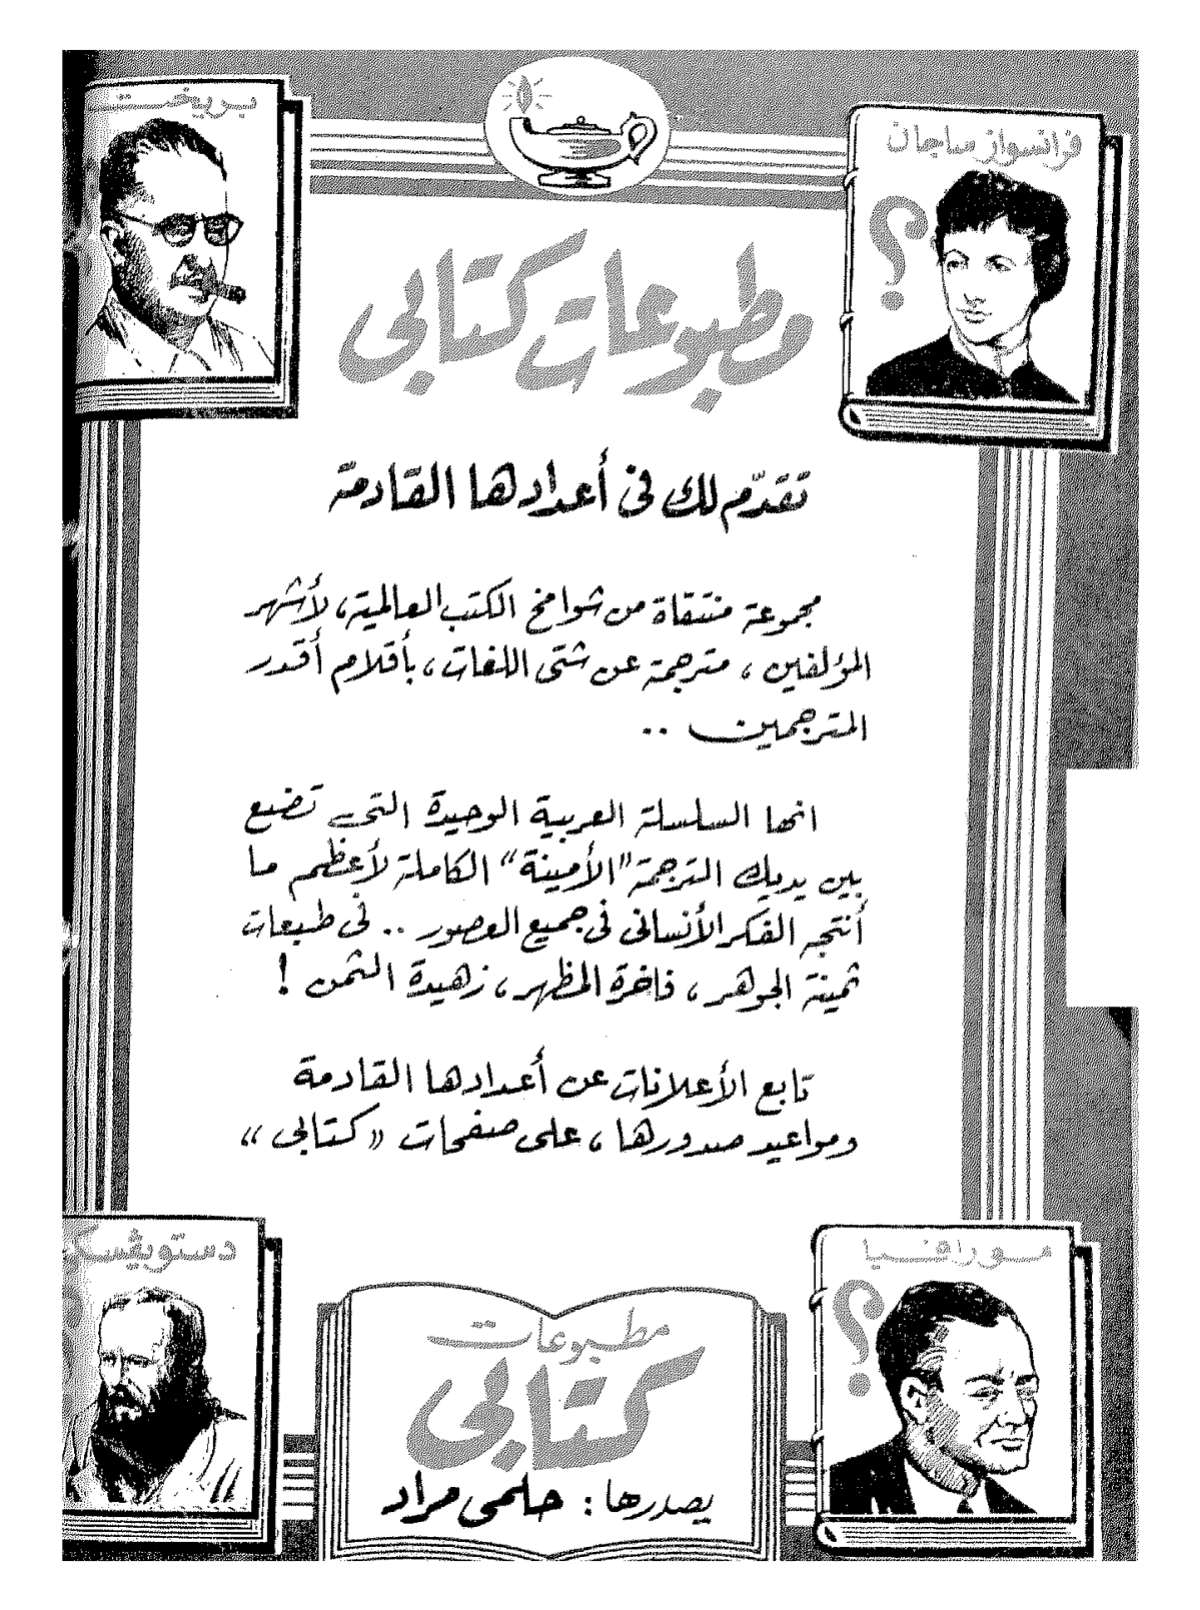 بريخت
فرانسواز ساجان
مطبوعات كتابى
تقدّم لك فى أعدادها القادمة
مجموعة منتقاة من شوامخ الكتب العالمية، لأشهر
المؤلفين، مترجمة عن شتى اللغات، بأقلام أقدر
المترجمين ..
انها السلسلة العربية الوحيدة التى تضع
بين يديك الترجمة "الأمينة" الكاملة لأعظم ما
أنتجه الفكر الأنسانى فى جميع العصور .. فى طبعات
ثمينة الجوهر، فاخرة المظهر، زهيدة الثمن !
تابع الأعلانات عن أعدادها القادمة
ومواعيد صدورها، على صفحات «كتابى»
دستويڤسك
مورافيا
؟
مطبوعات
كتابى
يصدرها : حلمى مراد